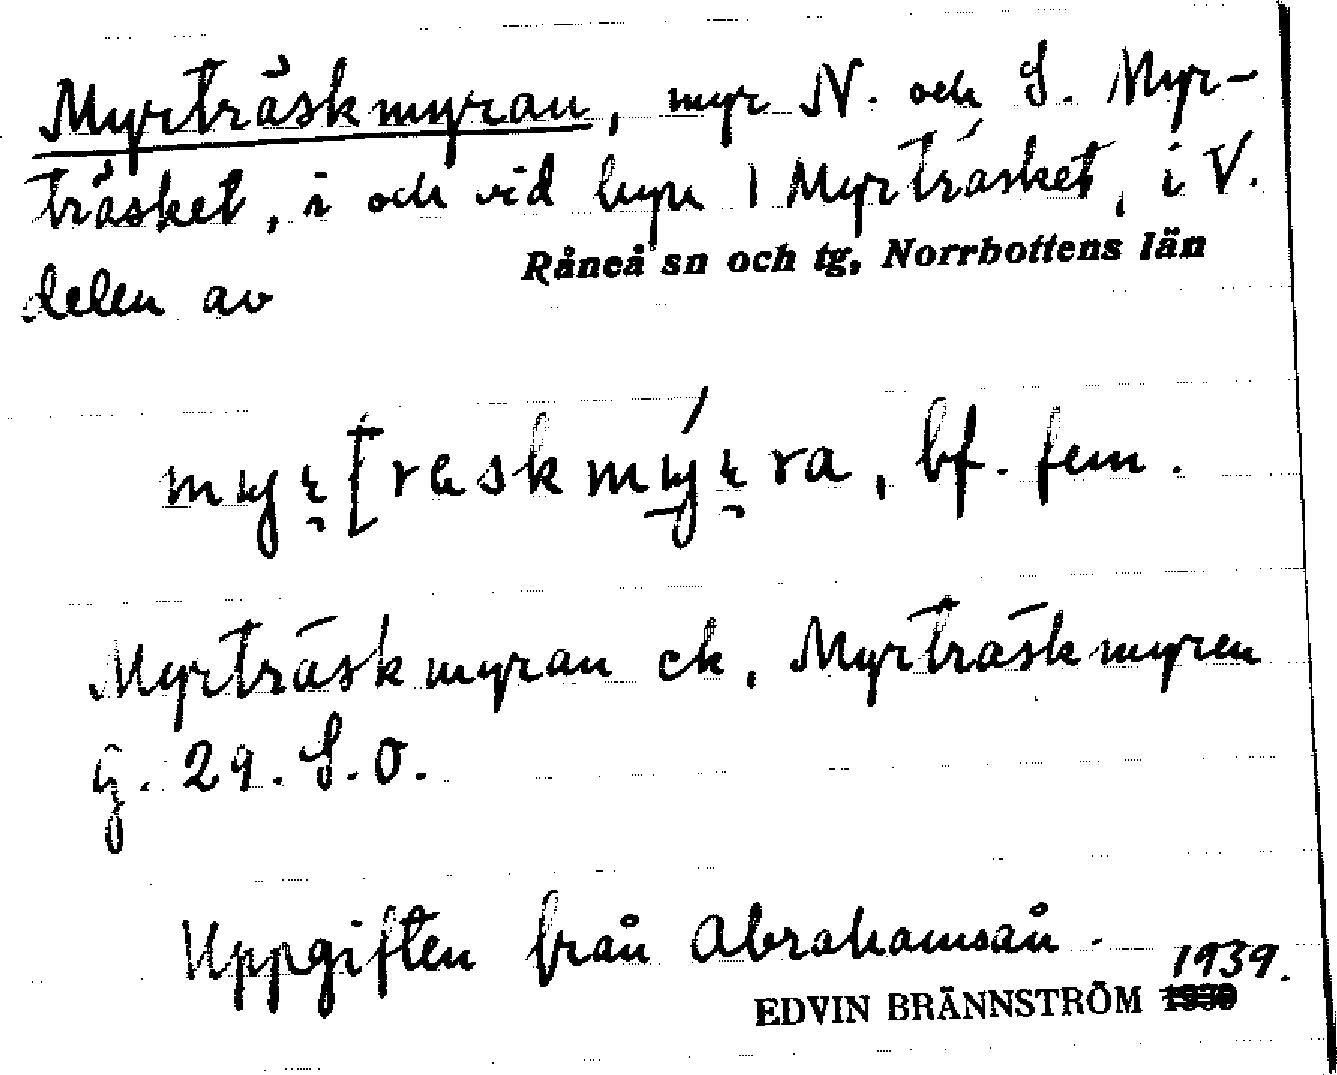 Myrträskmyran, myr N. och S. Myr-
träsket, i och vid byn Myrträsket, i V.
Råneå sn och tg, Norrbottens län
delen av
bf. fem.
Myrträskmyran ek, Myrträskmyren
g. 29. S.O.
Uppgiften från Abrahamsån.
1939.
EDVIN BRÄNNSTRÖM 1930